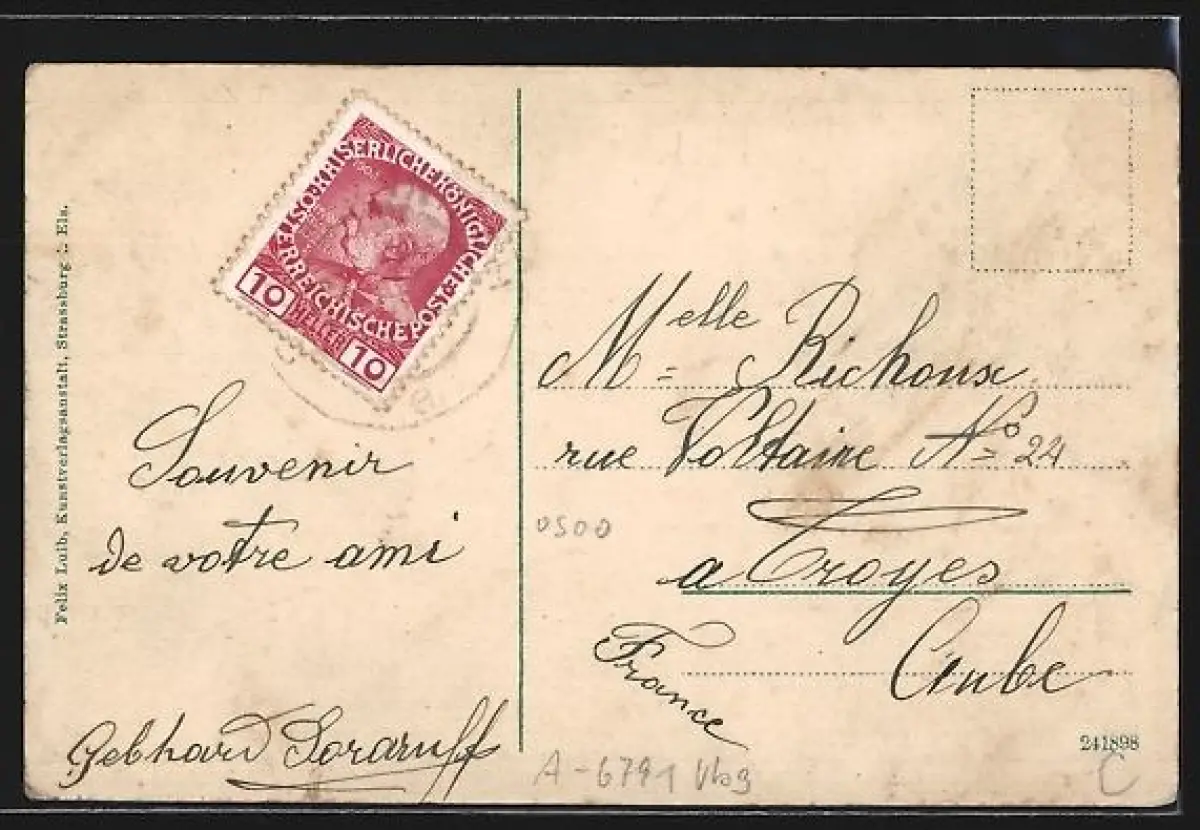 Felix Luib, Kunstverlagsanstalt, Strassburg i. Els.
KAISERLICHE KÖNIGLICHE
ÖSTERREICHISCHE POST
1908
10 HELLER 10
Souvenir
de votre ami
Gebhard Soraruff
Melle Richoux
rue Voltaire No 24
a Troyes
Aube
France
0500
A-6791 Vbg
241898
C